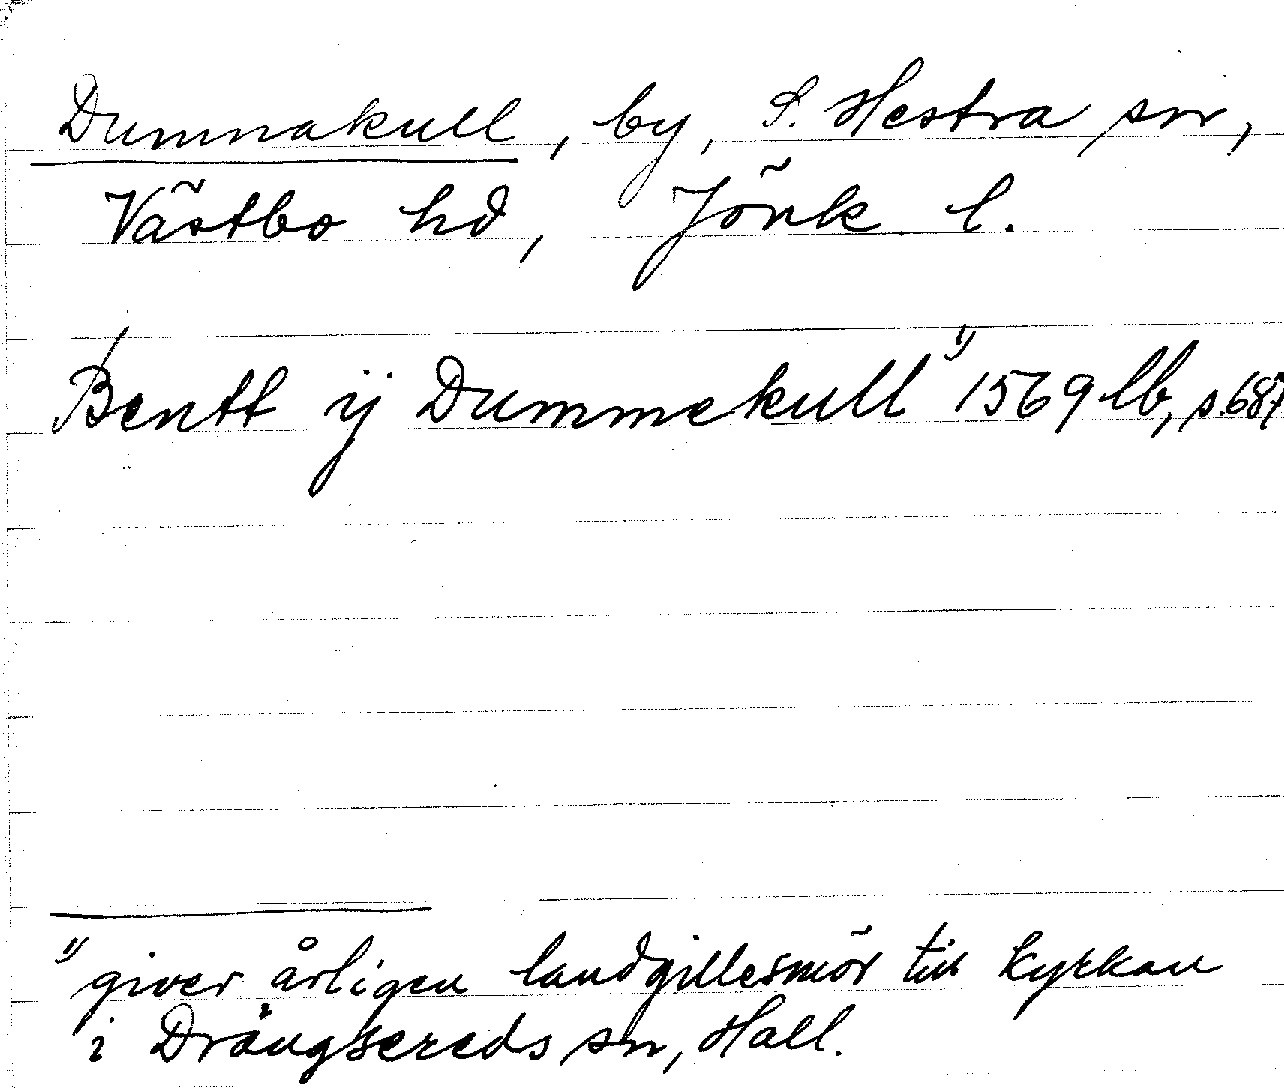 Dumnakull, by, S. Hestra sn,
Västbo hd, Jönk l.
Bentt ij Dummekull 1) 1569 lb, s. 687
1) giver årligen landgillesmör till kyrkan
i Drängsereds sn, Hall.